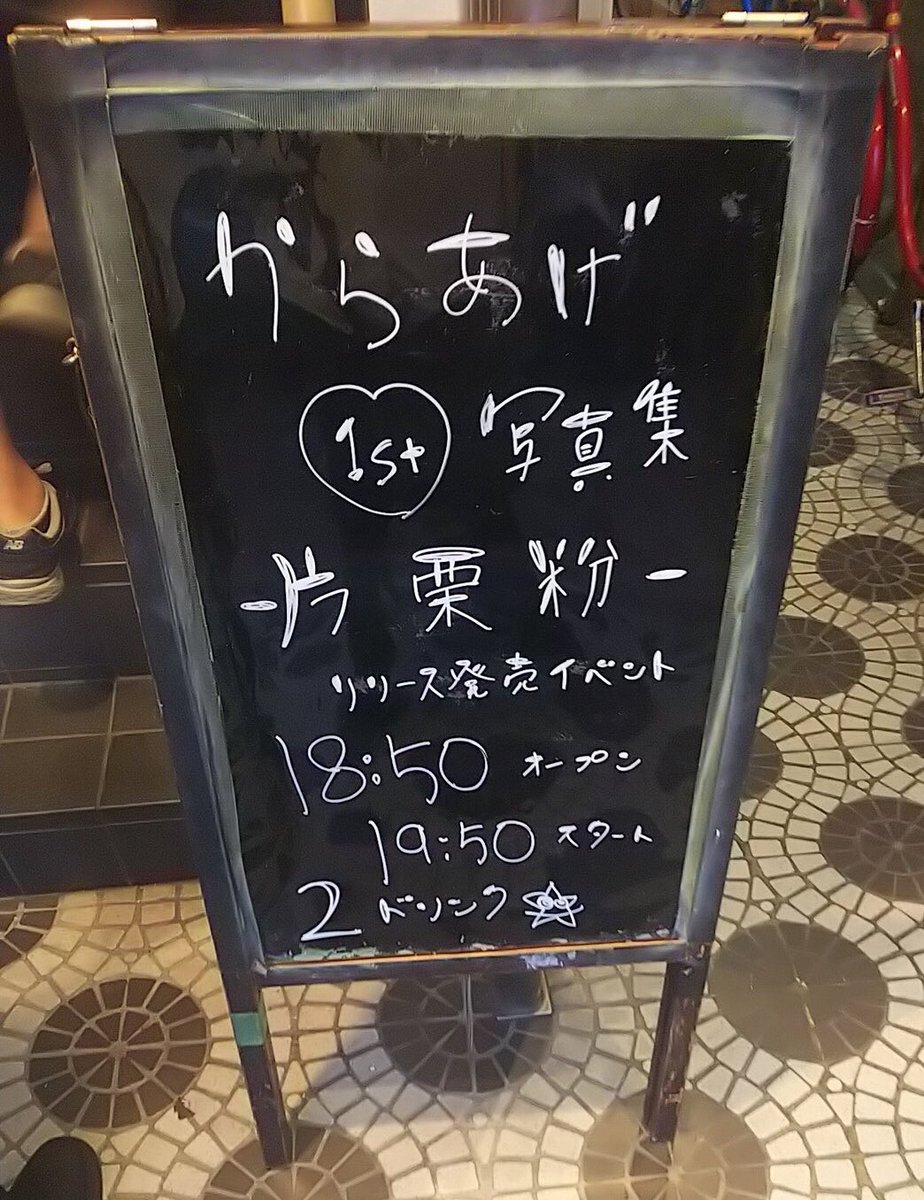 からあげ
1st 写真集
-片栗粉-
リリース発売イベント
18:50 オープン
19:50 スタート
2ドリンク